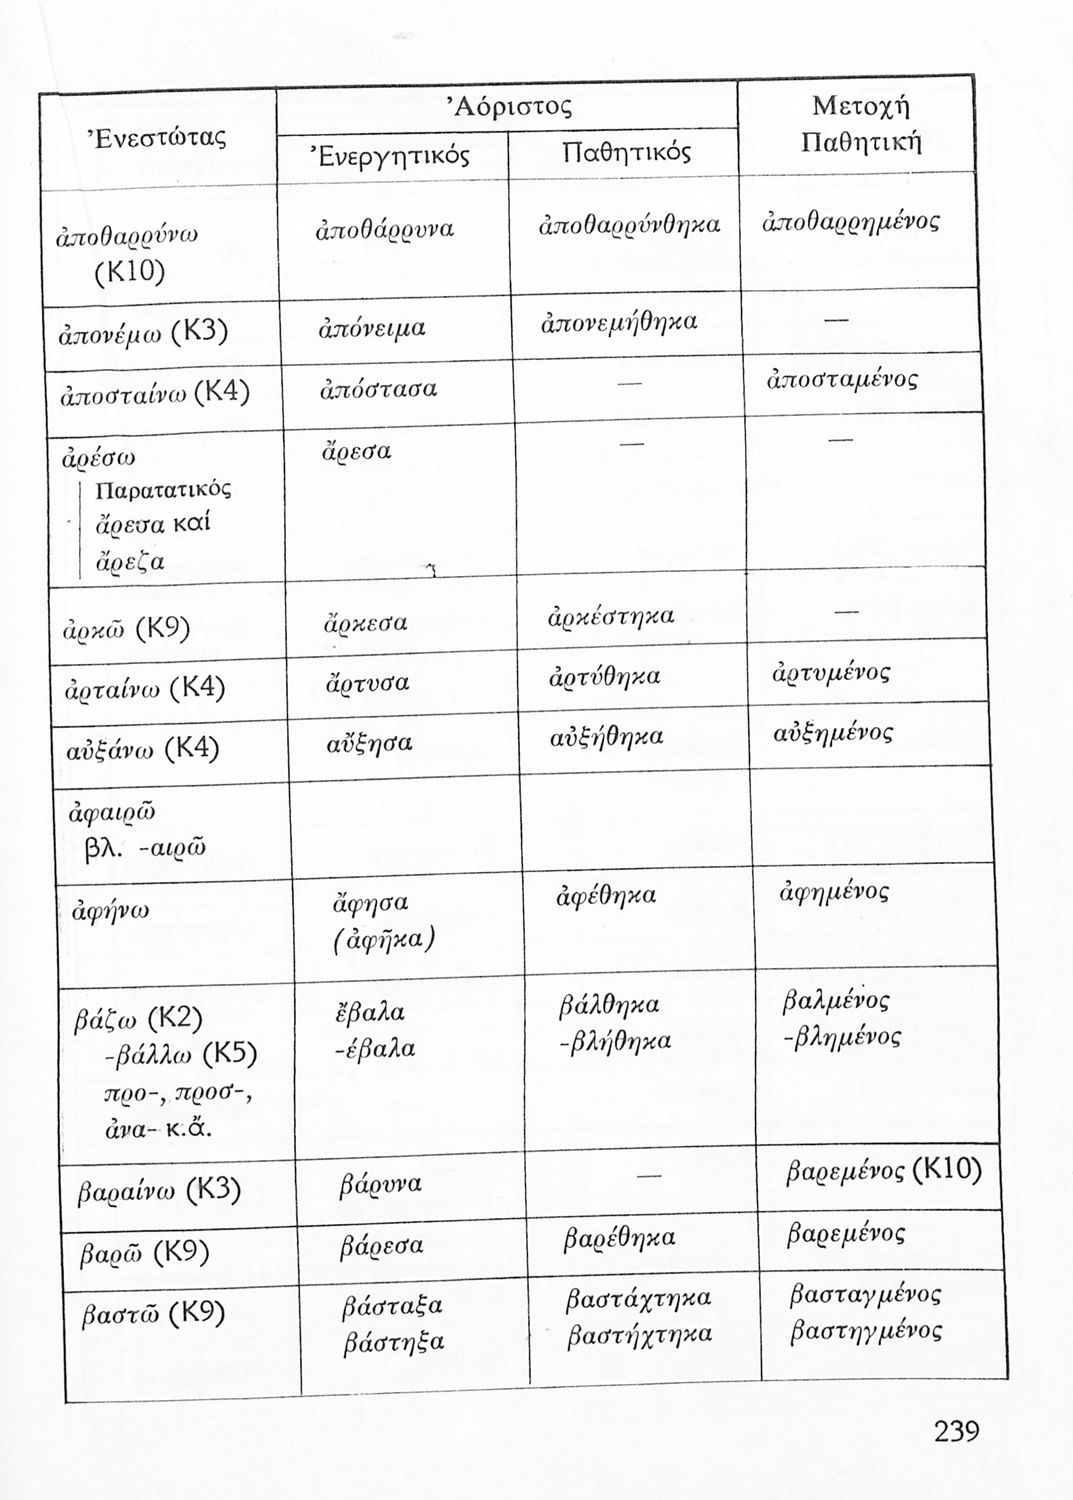 Ἐνεστώτας
Ἀόριστος
Μετοχή
Παθητική
Ἐνεργητικός
Παθητικός
ἀποθαρρύνω
(Κ10)
ἀποθάρρυνα
ἀποθαρρύνθηκα
ἀποθαρρημένος
ἀπονέμω (Κ3)
ἀπόνειμα
ἀπονεμήθηκα
—
ἀποσταίνω (Κ4)
ἀπόστασα
—
ἀποσταμένος
ἀρέσω
Παρατατικός
ἄρεσα καί
ἄρεζα
ἄρεσα
—
—
ἀρκῶ (Κ9)
ἄρκεσα
ἀρκέστηκα
—
ἀρταίνω (Κ4)
ἄρτυσα
ἀρτύθηκα
ἀρτυμένος
αὐξάνω (Κ4)
αὔξησα
αὐξήθηκα
αὐξημένος
ἀφαιρῶ
βλ. -αιρῶ
ἀφήνω
ἄφησα
(ἀφῆκα)
ἀφέθηκα
ἀφημένος
βάζω (Κ2)
-βάλλω (Κ5)
προ-, προσ-,
ἀνα- κ.ἄ.
ἔβαλα
-έβαλα
βάλθηκα
-βλήθηκα
βαλμένος
-βλημένος
βαραίνω (Κ3)
βάρυνα
—
βαρεμένος (Κ10)
βαρῶ (Κ9)
βάρεσα
βαρέθηκα
βαρεμένος
βαστῶ (Κ9)
βάσταξα
βάστηξα
βαστάχτηκα
βαστήχτηκα
βασταγμένος
βαστηγμένος
239